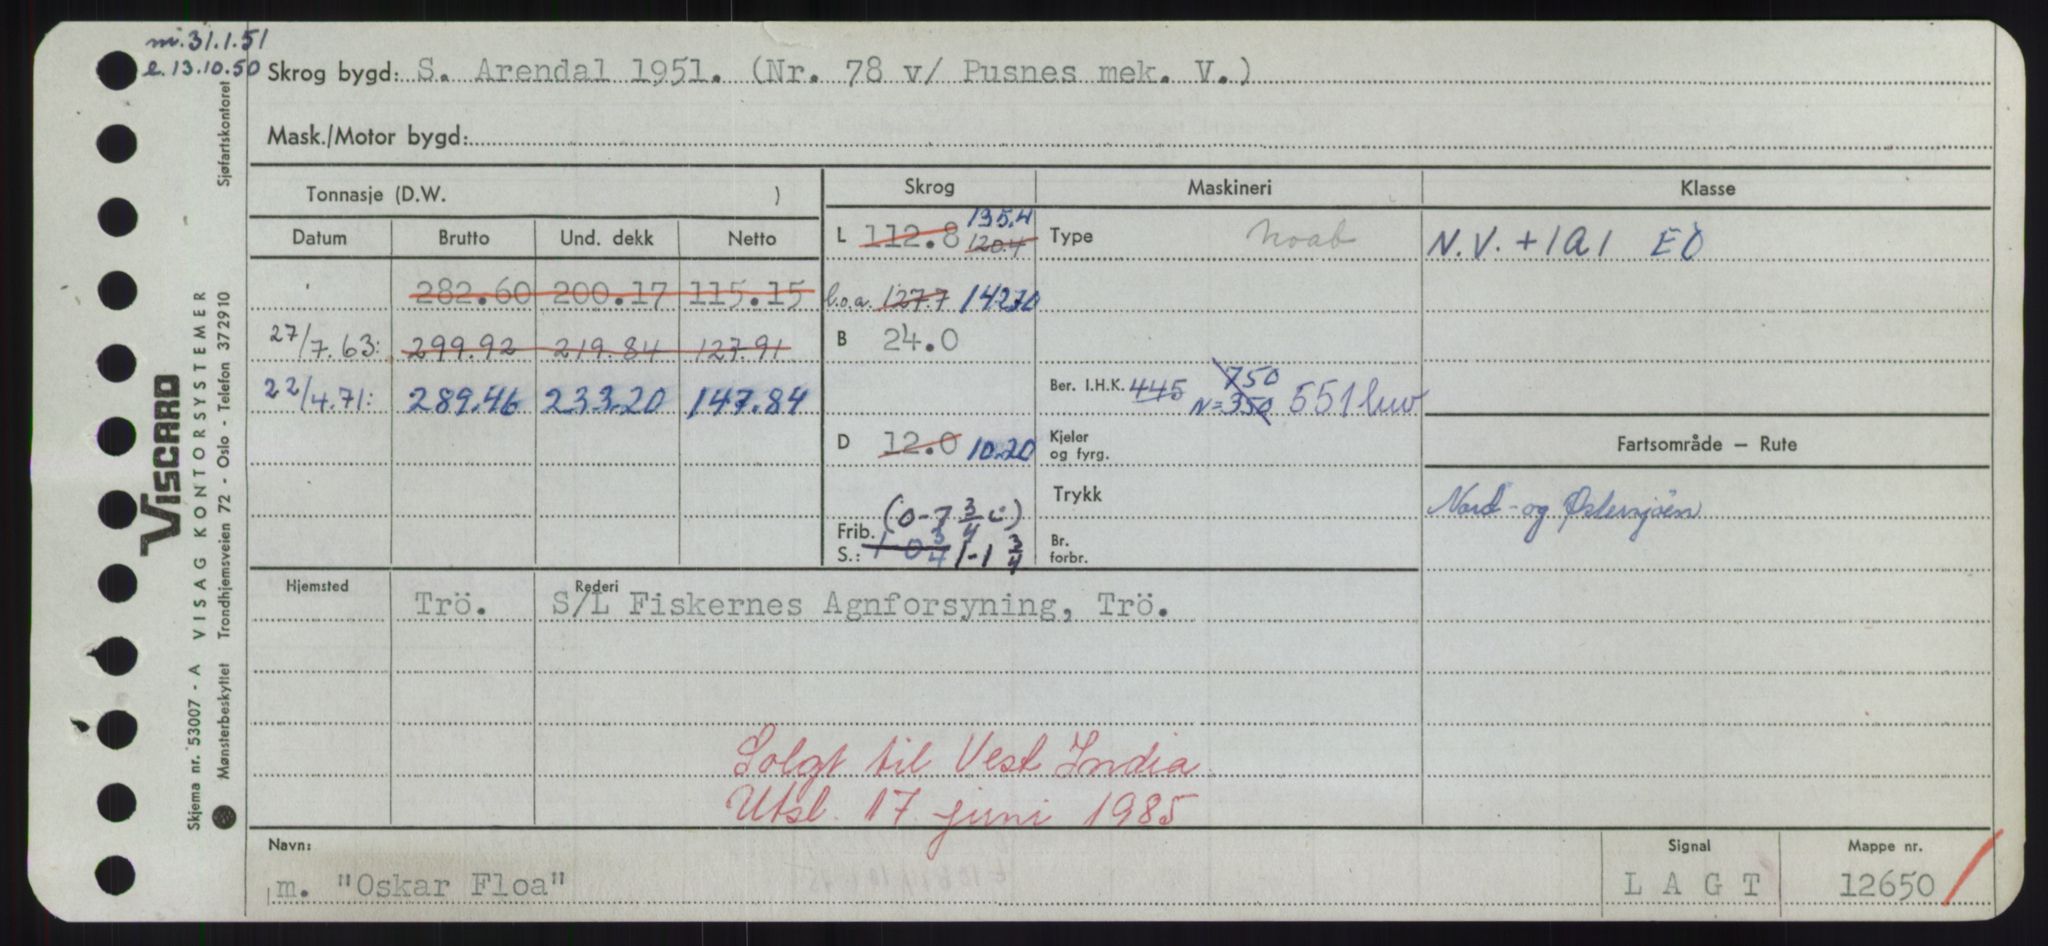 m. 31.1.51
l. 13.10.50
Skrog bygd: S. Arendal 1951. (Nr. 78 v/ Pusnes mek. V.)
Mask./Motor bygd:
Tonnasje (D.W. )
Skrog Maskineri Klasse
Datum Brutto Und. dekk Netto
L 112.8 120.4 135.4
Type Noab
N.V. +1A1 EO
282.60 200.17 115.15
l.o.a. 127.7 142.70
27/7.63: 299.92 219.84 127.91
B 24.0
22/4.71: 289.46 233.20 147.84
Ber. I.H.K. 445 750 N=350 551 kw
D 12.0 10.20
Kjeler og fyrg.
Fartsområde – Rute
Trykk
Nord- og Østersjøen
(0-7 3/4 c)
Frib. S.: 1-0 3/4 1-1 3/4
Br. forbr.
Hjemsted Rederi
Trö. S/L Fiskernes Agnforsyning, Trö.
Solgt til Vest India
Utsl. 17. juni 1985
Navn: Signal Mappe nr.
m. "Oskar Floa" L A G T 12650
Skjema nr. 53007 - A VISAG KONTORSYSTEMER
VISCARD
Mønsterbeskyttet Trondhjemsveien 72 - Oslo - Telefon 372910 Sjøfartskontoret